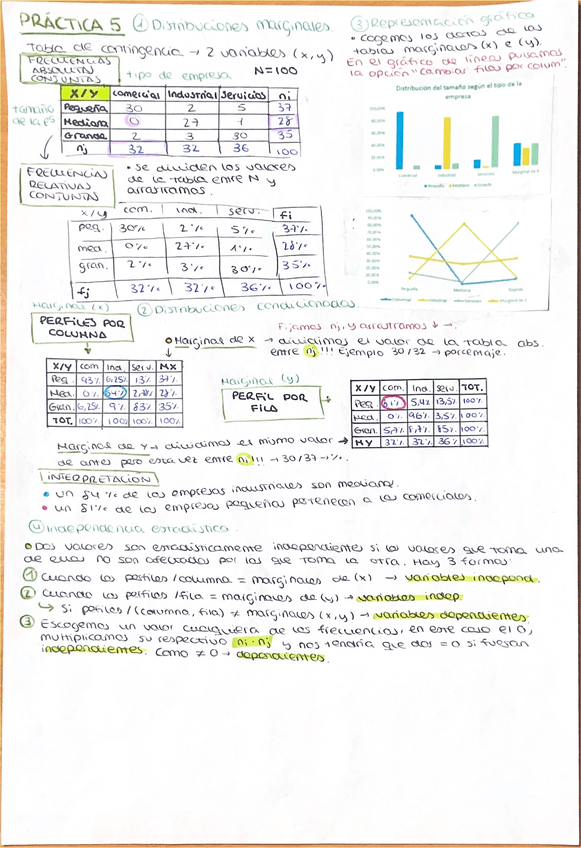 PRÁCTICA 5
① Distribuciones marginales.
Tabla de contingencia → 2 variables (x, y)
FRECUENCIAS ABSOLUTAS CONJUNTAS
tipo de empresa N=100
tamaño de la Eª
X/Y Comercial Industrial Servicios ni
Pequeña 30 2 5 37
Mediana 0 27 1 28
Grande 2 3 30 35
nj 32 32 36 100
FRECUENCIAS RELATIVAS CONJUNTAS
• se dividen los valores
de la tabla entre N y
arrastramos.
x/y com. ind. serv. fi
peq. 30% 2% 5% 37%
med. 0% 27% 1% 28%
gran. 2% 3% 30% 35%
fj 32% 32% 36% 100%
③ Representación gráfica
• cogemos los datos de las
tablas marginales (x) e (y).
En el gráfico de líneas pulsamos
la opción "cambiar filas por colum".
Distribución del tamaño según el tipo de la
empresa
100,00%
80,00%
60,00%
40,00%
20,00%
0,00%
Comercial Industrial Servicios Marginal de X
Pequeña Mediana Grande
100,00%
90,00%
80,00%
70,00%
60,00%
50,00%
40,00%
30,00%
20,00%
10,00%
0,00%
Pequeña Mediana Grande
Comercial Industrial Servicios Marginal de X
Marginal (x)
② Distribuciones condicionadas.
PERFILES POR COLUMNA
Fijamos nj, y arrastramos ↓ →.
Marginal de x → dividimos el valor de la tabla abs.
entre nj!!! Ejemplo 30/32 → porcentaje.
X/Y com Ind. Serv. MX
Peq. 93% 6,25% 13% 37%
Med. 0% 84% 2,78% 28%
Gran. 6,25% 9% 83% 35%
TOT. 100% 100% 100% 100%
Marginal (y)
PERFIL POR FILA
X/Y com. Ind. serv. TOT.
Peq. 81% 5,4% 13,5% 100%
Med. 0% 96% 3,5% 100%
Gran. 5,7% 8,7% 85% 100%
MY 32% 32% 36% 100%
Marginal de Y → dividimos el mismo valor
de antes pero esta vez entre ni!!! → 30/37 → %.
INTERPRETACIÓN
• un 84% de las empresas industriales son mediana.
• un 81% de las empresas pequeñas pertenecen a las comerciales.
④ Independencia estadística.
Dos valores son estadísticamente independientes si los valores que toma una
de ellas no son afectados por los que toma la otra. Hay 3 formas:
① Cuando los perfiles/columna = marginales de (x) → variables independ.
② Cuando los perfiles/fila = marginales de (y) → variables indep.
↳ Si perfiles/(columna, fila) ≠ marginales (x, y) → variables dependientes.
③ Escogemos un valor cualquiera de las frecuencias, en este caso el 0,
multiplicamos su respectivo ni · nj y nos tendría que dar = 0 si fueran
independientes. Como ≠ 0 → dependientes.